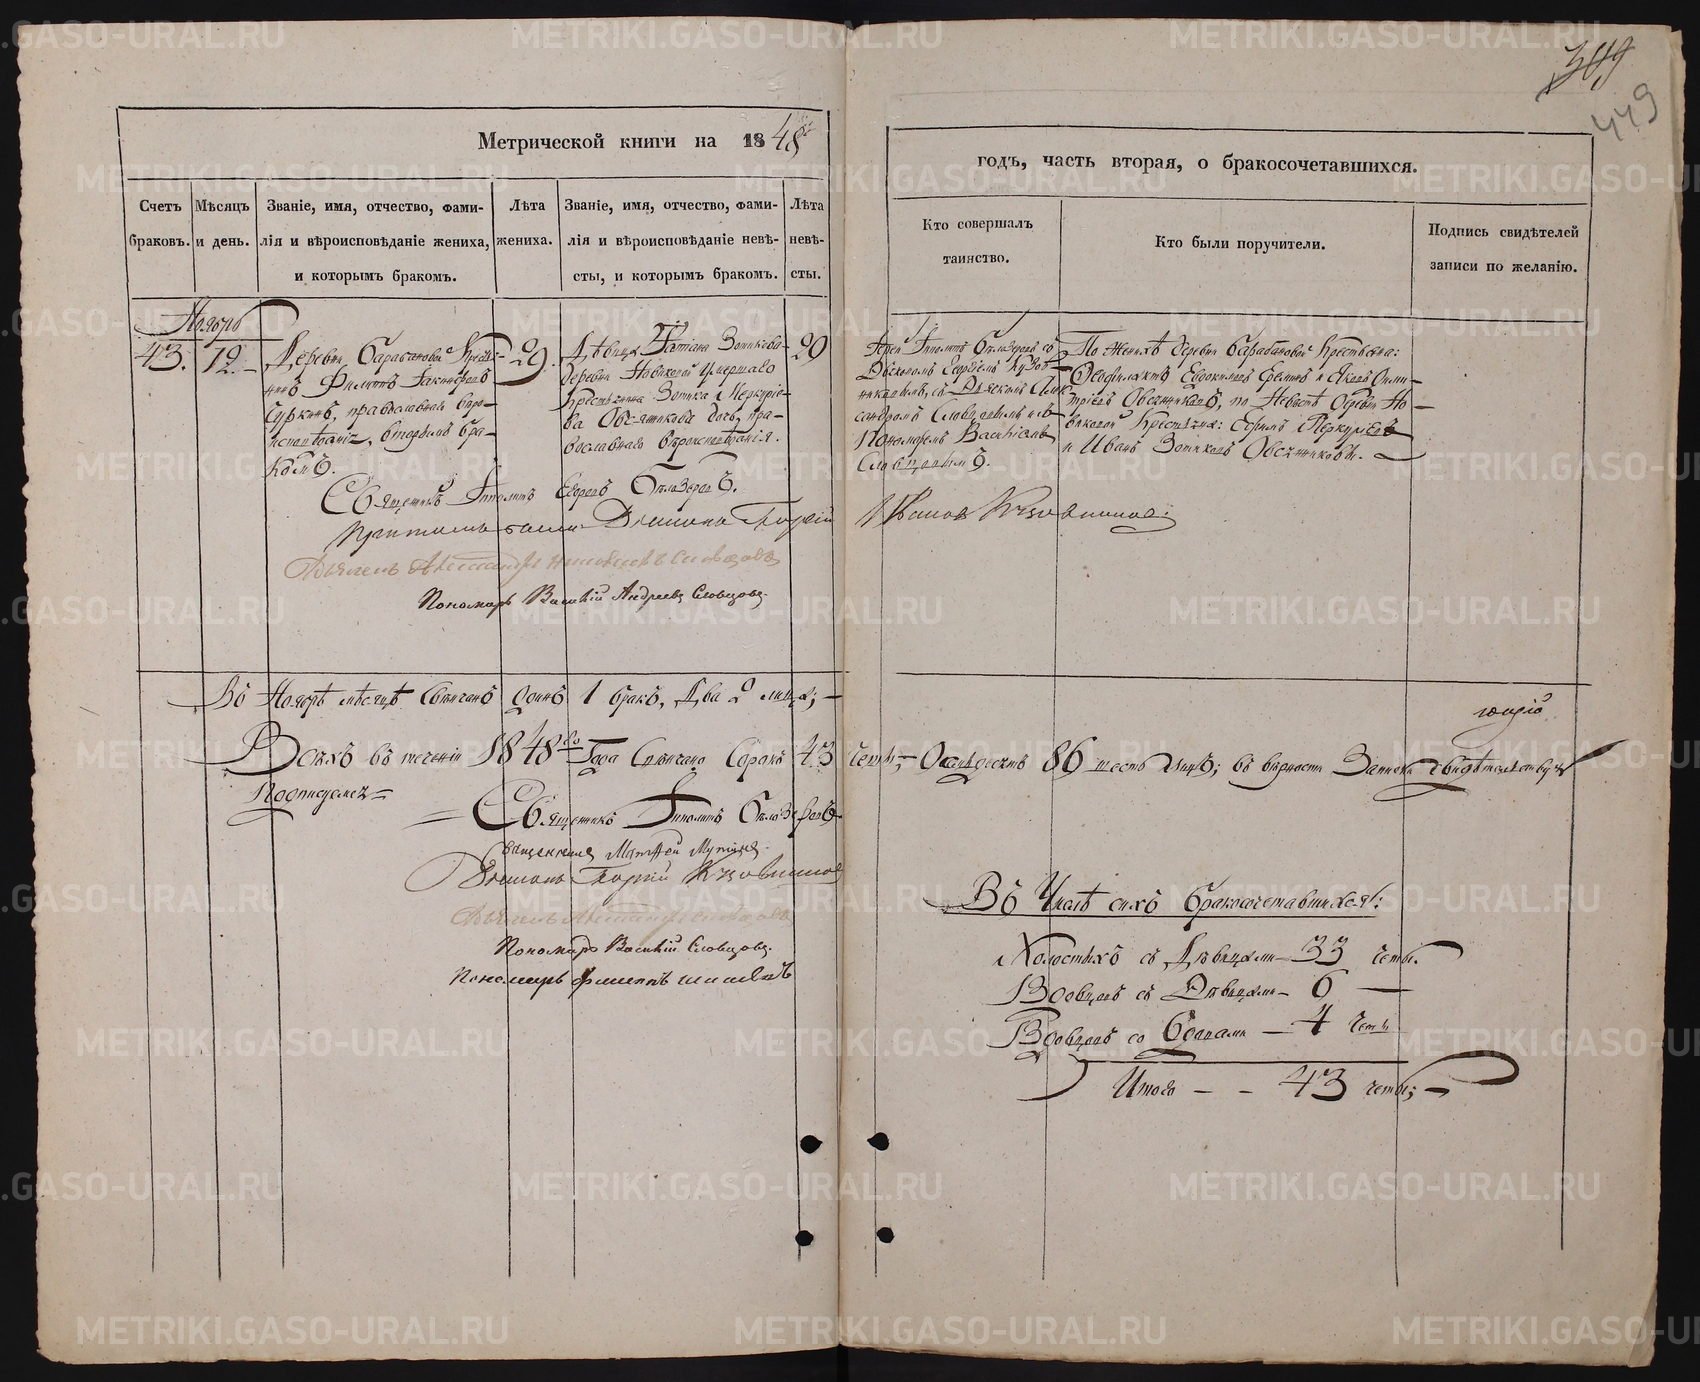 349
449
Метрической книги на 1848й
годъ, часть вторая, о бракосочетавшихся.
Счетъ браковъ.
Мѣсяцъ и день.
Званіе, имя, отчество, фами-
лія и вѣроисповѣданіе жениха,
и которымъ бракомъ.
Лѣта
жениха.
Званіе, имя, отчество, фами-
лія и вѣроисповѣданіе невѣ-
сты, и которымъ бракомъ.
Лѣта
невѣ-
сты.
Кто совершалъ
таинство.
Кто были поручители.
Подпись свидѣтелей
записи по желанію.
Ноябрь
43.
12.
Деревни Барабановой Крестья-
нинъ Филипъ
Суркинъ, православнаго вѣро-
исповѣданія, вторымъ бра-
комъ.
29.
Дѣвица Татіана Зотикова
деревни Новиковой умершаго
Крестьянина Зотика Меркуріе-
ва Овсянникова дочь, пра-
вославнаго вѣроисповѣданія.
20
Іерей Ипполитъ Бѣлозеровъ съ
Діакономъ
съ Дьячкомъ Алек-
сандромъ Словцовымъ и
Пономаремъ Василіемъ
Словцовымъ.
По женихѣ деревни Барабановой Крестьяна:
Феофилактъ Евдокимовъ и Яковъ Дими-
тріевъ Овсянниковъ, по Невѣстѣ деревни Но-
виковой Крестьяна: Ефимъ Меркурьевъ
и Иванъ Зотиковъ Овсянниковы.
Священникъ Ипполитъ Егоровъ Бѣлозеровъ.
Діаконъ
Дьячекъ Александръ Словцовъ
Пономарь Василій Андреевъ Словцовъ
Въ Ноябрѣ мѣсяцѣ Свѣнчанъ одинъ 1 бракъ, Два 2 лица;
Всѣхъ въ теченіи 1848го Года Свѣнчано Сорокъ 43 четы, Осмьдесятъ 86 шесть лицъ; въ вѣрности Записи свидѣтельствуя
Подписуемся
Священникъ Ипполитъ Бѣлозеровъ
Священникъ Матѳей
Діаконъ
Дьячекъ Александръ Словцовъ
Пономарь Василій Словцовъ.
Пономарь Филиппъ
Въ Числѣ сихъ бракосочетавшихся:
Холостыхъ съ Дѣвицами 33 четы.
Вдовцовъ съ Дѣвицами 6
Вдовцовъ со Вдовами 4 четы
Итого 43 четы;
METRIKI.GASO-URAL.RU